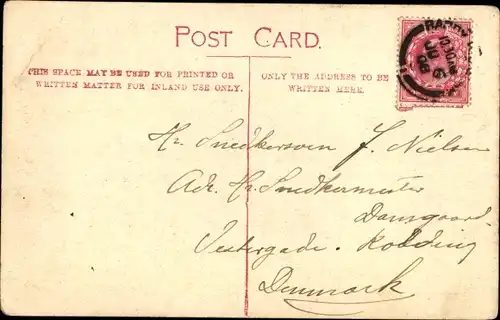 POST CARD.
THIS SPACE MAY BE USED FOR PRINTED OR
WRITTEN MATTER FOR INLAND USE ONLY.
ONLY THE ADDRESS TO BE
WRITTEN HERE.
Hr. Snedkersven J. Nielsen
Adr. Hr. Snedkermester
Damgaard
Vestergade. Kolding
Denmark